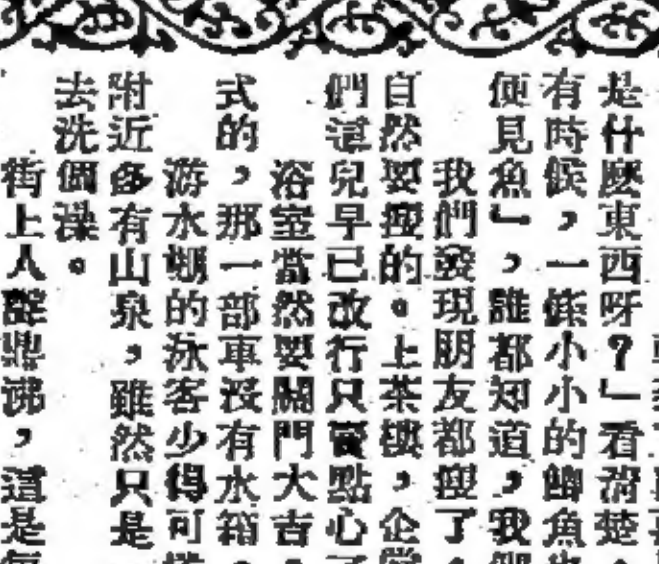 是什麼東西呀？」看清楚
有時候，一條小小的鱓魚
便見魚」，誰都知道，我們
我們發現朋友都瘦了
自然要瘦的。上茶樓，企堂
們這兒早已改行只賣點心了
浴室當然要關門大吉
式的，那一部車沒有水箱
游水棚的泳客少得可
附近多有山泉，雖然只是
去洗個澡。
街上人聲鼎沸，這是每